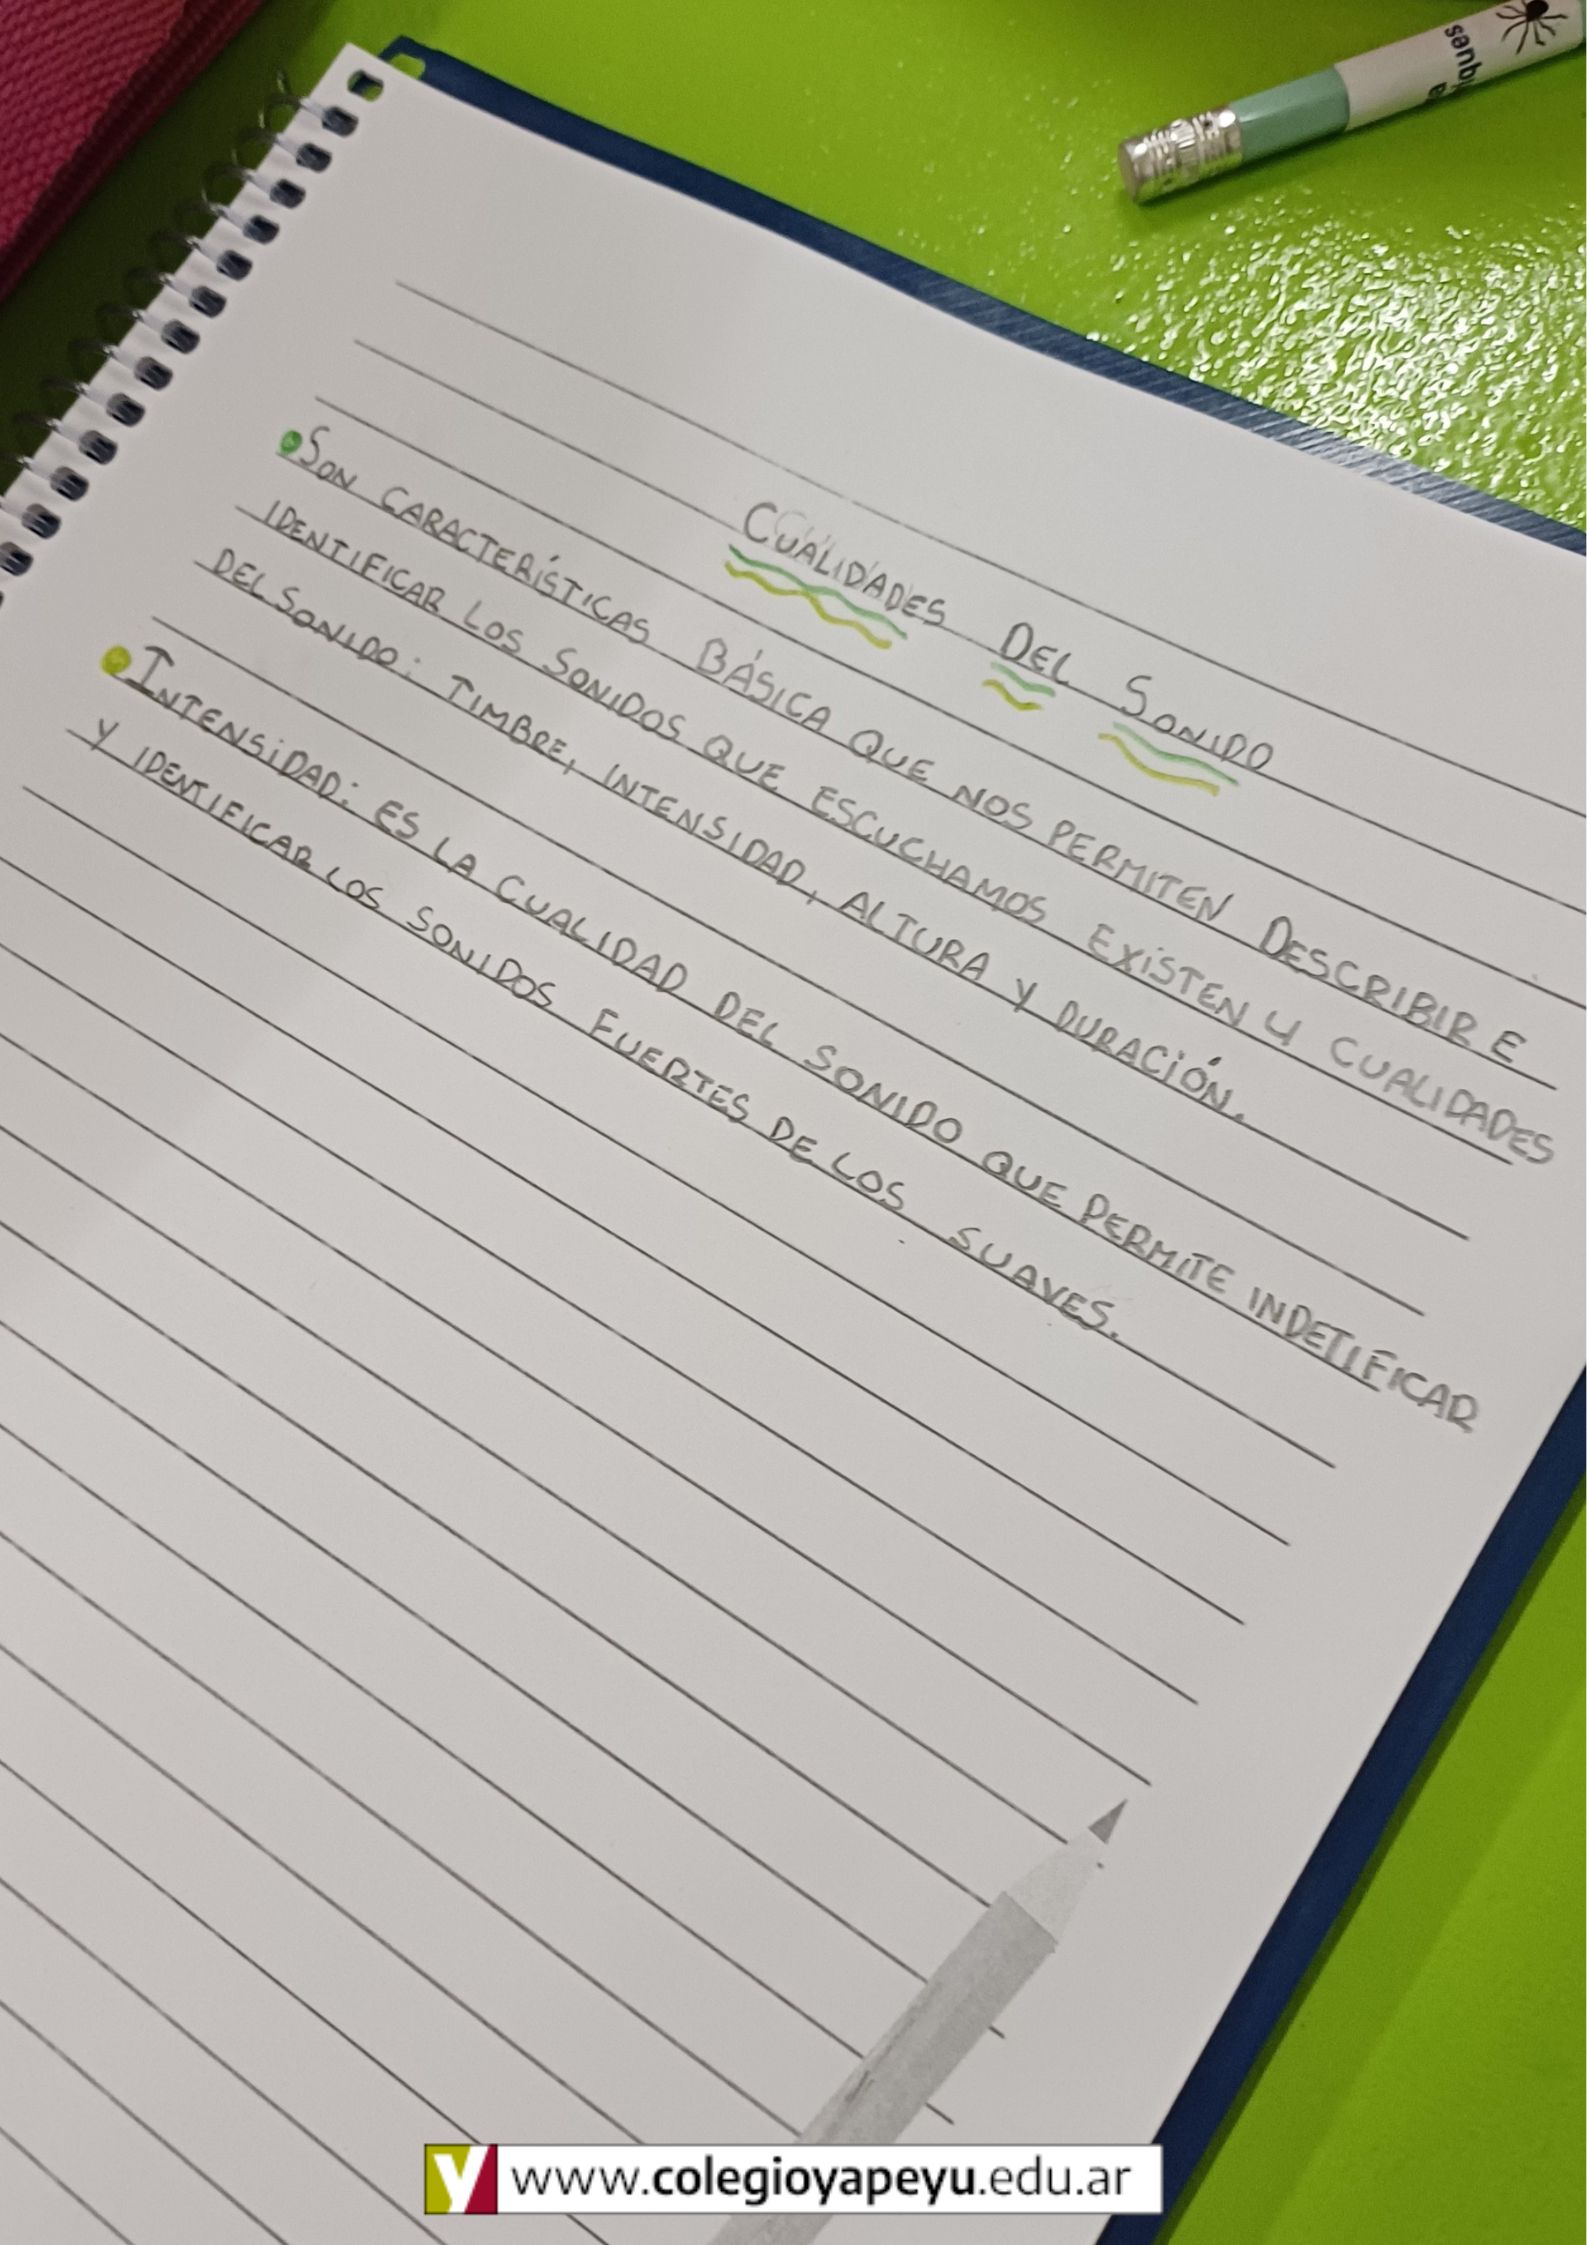 CUALIDADES DEL SONIDO
SON CARACTERÍSTICAS BÁSICA QUE NOS PERMITEN DESCRIBIR E
IDENTIFICAR LOS SONIDOS QUE ESCUCHAMOS EXISTEN 4 CUALIDADES
DEL SONIDO: TIMBRE, INTENSIDAD, ALTURA Y DURACIÓN.
INTENSIDAD: ES LA CUALIDAD DEL SONIDO QUE PERMITE INDETIFICAR
Y IDENTIFICAR LOS SONIDOS FUERTES DE LOS SUAVES.
y www.colegioyapeyu.edu.ar